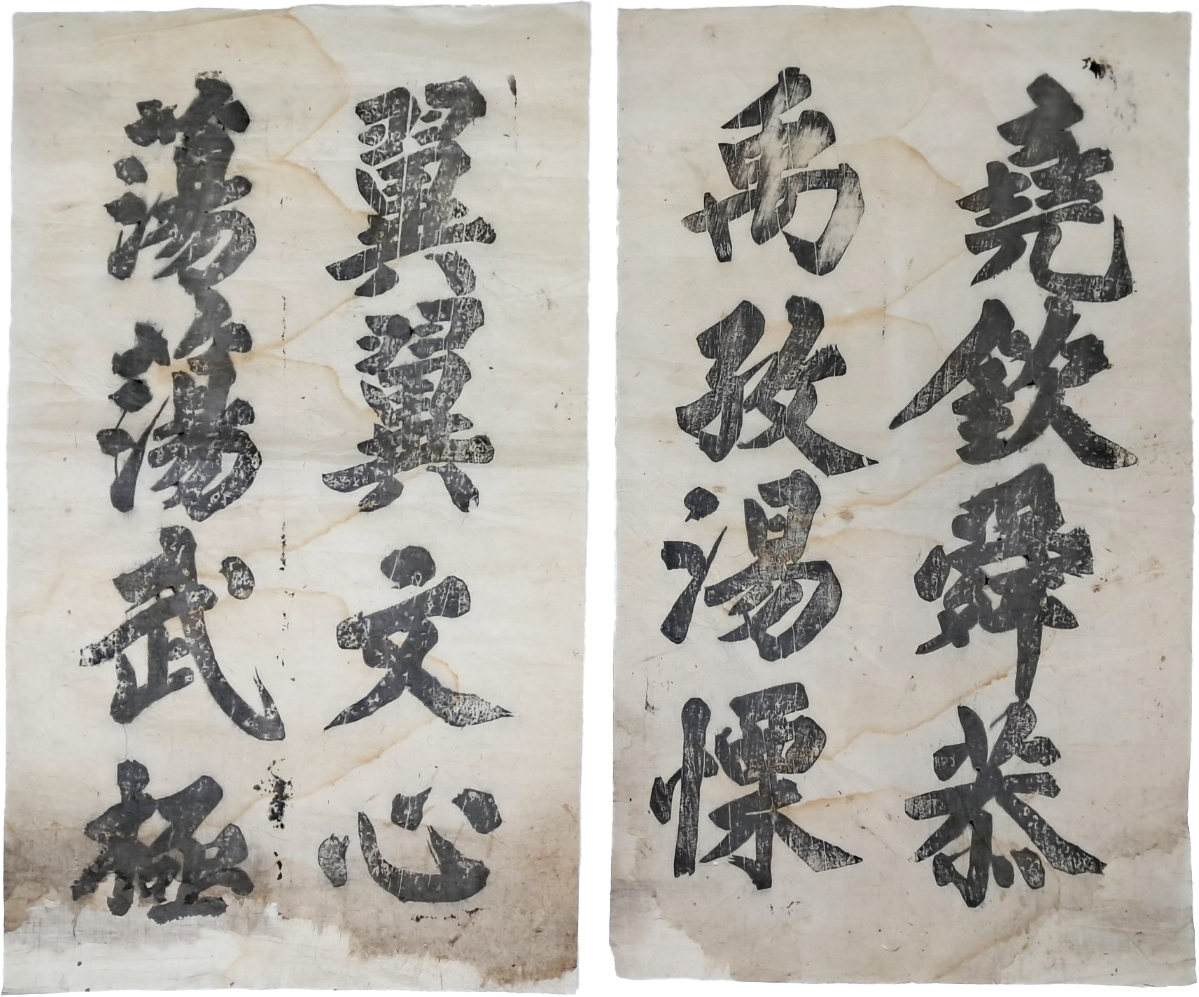 堯欽舜恭
禹孜湯慄
翼翼文心
蕩蕩武極